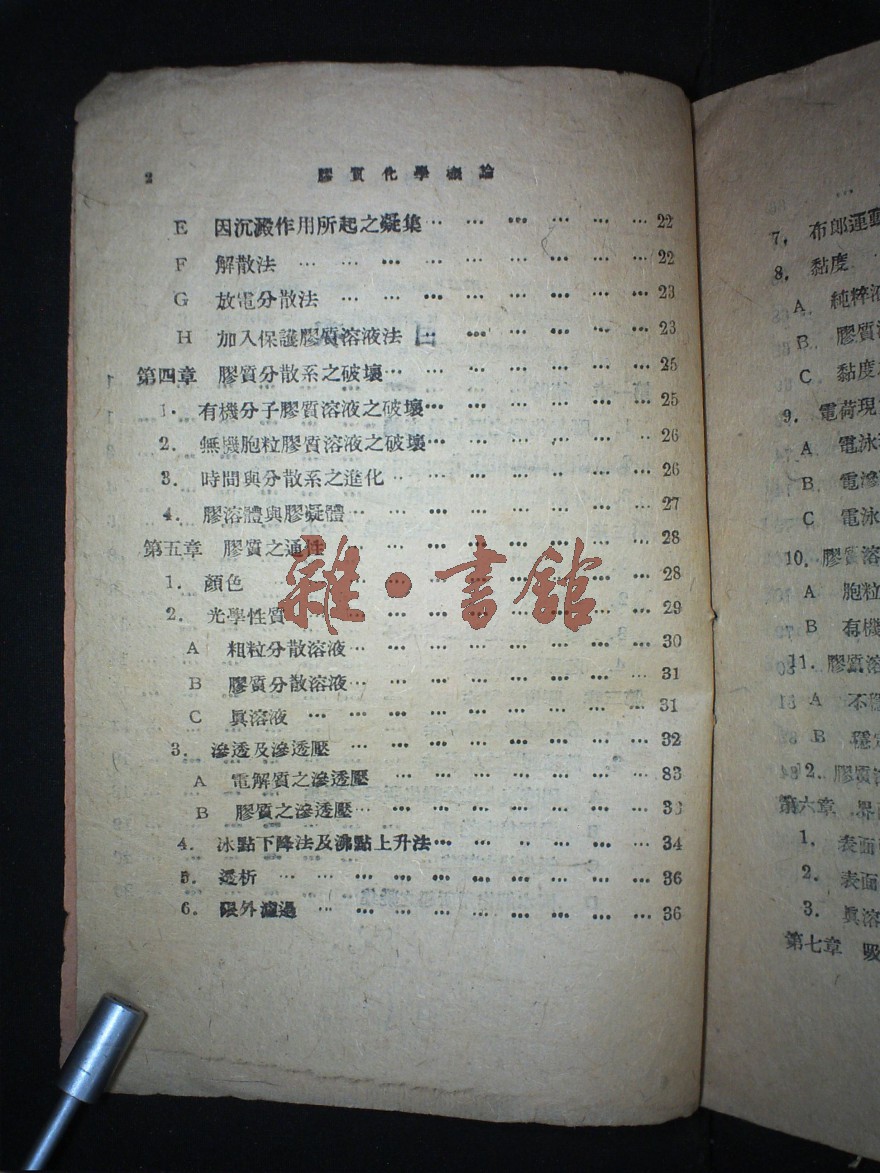 2 膠質化學概論
E 因沉澱作用所起之凝集 … … … … … … 22
F 解散法 … … … … … … … … … 22
G 放電分散法 … … … … … … … … 23
H 加入保護膠質溶液法 … … … … … 23
第四章 膠質分散系之破壞 … … … … … … … 25
1. 有機分子膠質溶液之破壞 … … … … … … 25
2. 無機胞粒膠質溶液之破壞 … … … … … … 26
3. 時間與分散系之進化 … … … … … … … 26
4. 膠溶體與膠凝體 … … … … … … … … 27
第五章 膠質之通性 … … … … … … … … 28
1. 顏色 … … … … … … … … … … 28
2. 光學性質 … … … … … … … … … 29
A 粗粒分散溶液 … … … … … … … … 30
B 膠質分散溶液 … … … … … … … … 31
C 眞溶液 … … … … … … … … … 31
3. 滲透及滲透壓 … … … … … … … … 32
A 電解質之滲透壓 … … … … … … … 33
B 膠質之滲透壓 … … … … … … … … 33
4. 冰點下降法及沸點上升法 … … … … … … 34
5. 透析 … … … … … … … … … … 36
6. 限外濾過 … … … … … … … … … 36
雜·書館
7. 布郎運動
8. 黏度
A. 純粹液
B. 膠質溶
C 黏度
9. 電荷現
A 電泳
B 電滲
C 電泳
10. 膠質溶
A 胞粒
B 有機
11. 膠質溶
A 不穩
B 穩定
12. 膠質溶
第六章 界面
1. 表面
2. 表面
3. 眞溶
第七章 吸